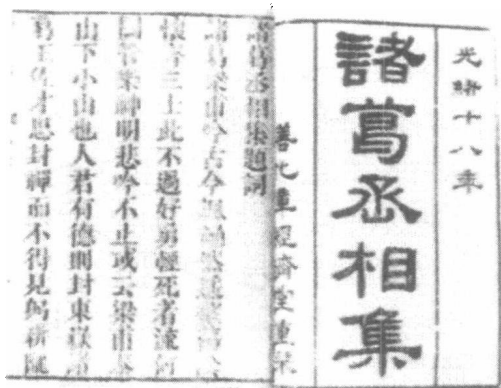 光緒十八年
諸葛丞相集
善化章經濟堂重栞
諸葛丞相集題詞
諸葛梁甫吟古今
懷音三上此不過好勇輕死者流何
神明悲吟不止或云梁甫泰
山下小山也人君有德則封東嶽諸
葛王佐才思封禪而不得見躬耕隴